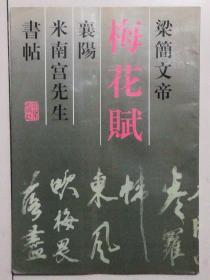 梁簡文帝
梅花賦
襄陽
米南宮先生
書帖
東風
吹梅畏
落盡